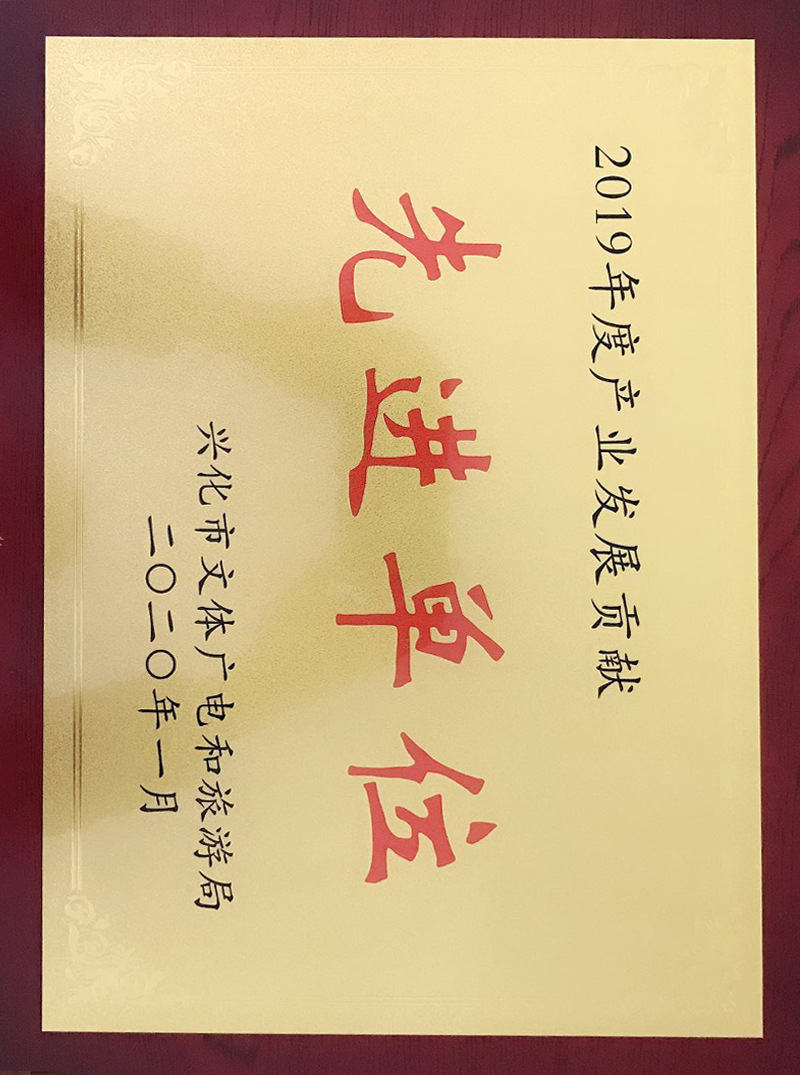 2019年度产业发展贡献
先进单位
兴化市文体广电和旅游局
二〇二〇年一月